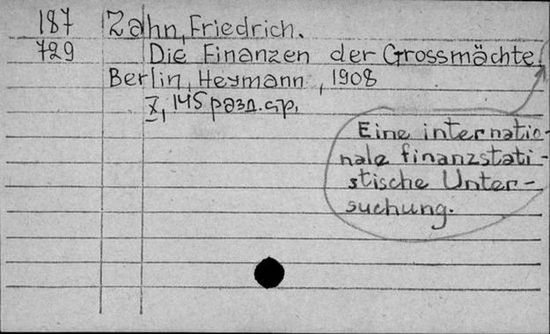 187 Zahn, Friedrich.
729 Die Finanzen der Grossmächte.
Berlin, Heymann, 1908
X, 145 разд. стр.
Eine internatio-
nale finanzstati-
stische Unter-
suchung.